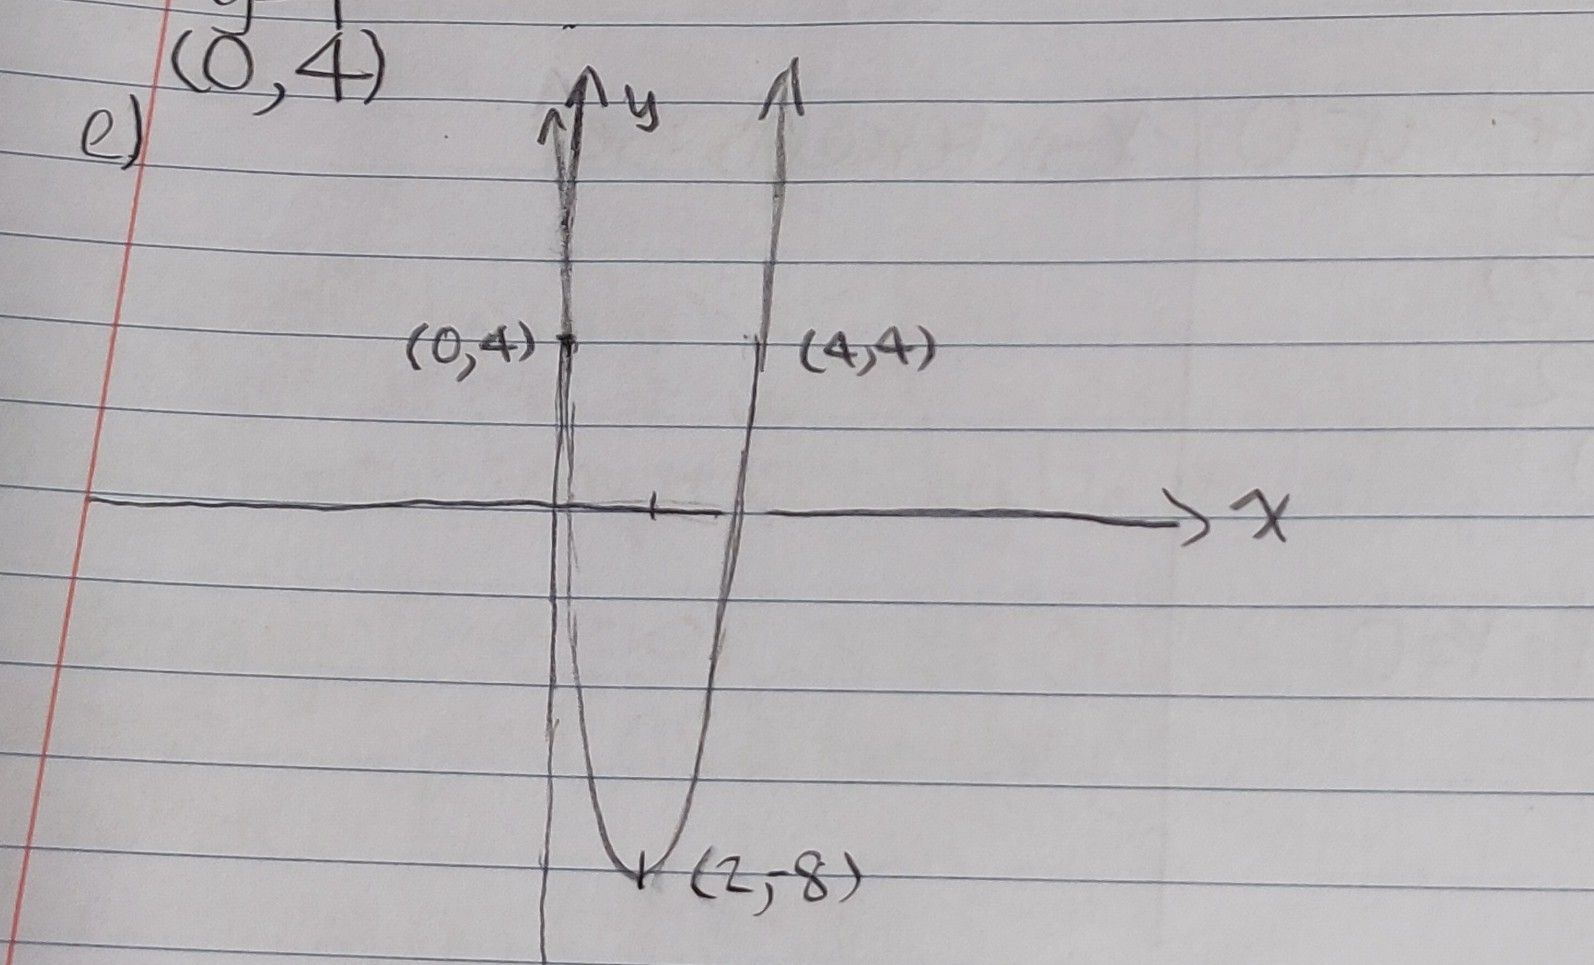 (0,4)
e)
y
(0,4) (4,4)
x
(2,-8)